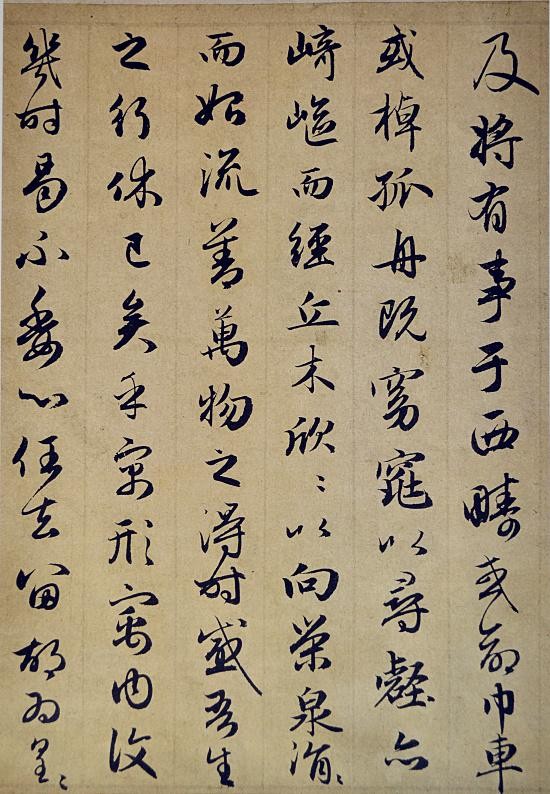 及將有事于西疇或命巾車
或棹孤舟既窈窕以尋壑亦
崎嶇而經丘木欣〻以向榮泉涓〻
而始流善萬物之得時感吾生
之行休已矣乎寓形寓內復
幾時曷不委心任去留胡為皇〻